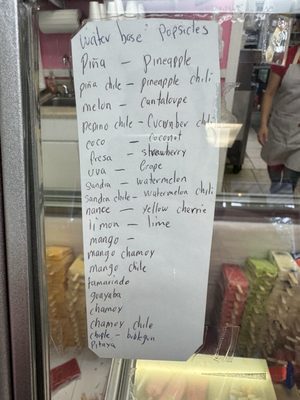 Water base Popsicles
Piña – Pineapple
piña chile – pineapple chili
melon – Cantaloupe
pepino chile – Cucumber chili
coco – coconut
fresa – strawberry
uva – Grape
Sandia – watermelon
Sandia chile – watermelon chili
nance – yellow cherrie
limon – lime
mango –
mango chamoy
mango chile
tamarindo
guayaba
chamoy
chamoy chile
Pitaya